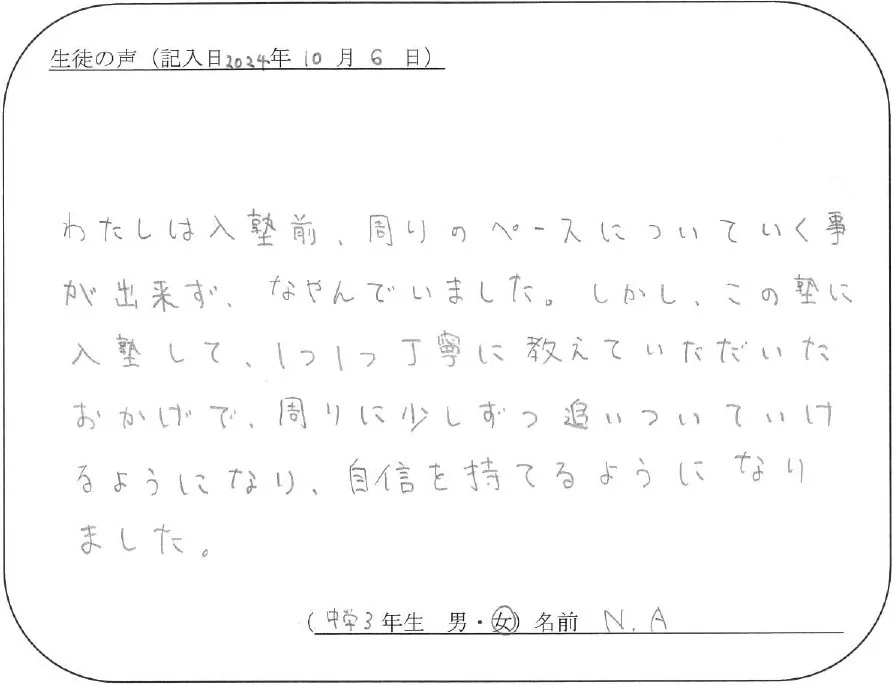 生徒の声（記入日2024年 10 月 6 日）
わたしは入塾前、周りのペースについていく事
が出来ず、なやんでいました。しかし、この塾に
入塾して、1つ1つ丁寧に教えていただいた
おかげで、周りに少しずつ追いついていけ
るようになり、自信を持てるようになり
ました。
（中学3年生 男・女）名前 N.A